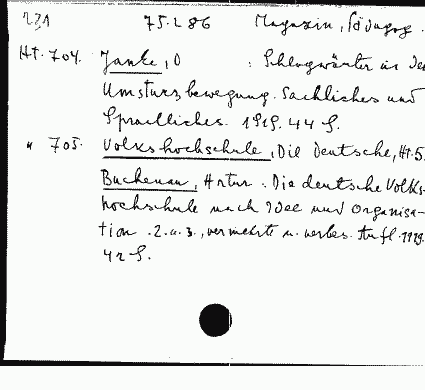 231 75.L 86 Magazin, Pädagog.
Ht. 704. Janke, O : Schlagwörter in De
Umsturzbewegung. Sachliches und
Sprachliches. 1919. 44 S.
" 705. Volkshochschule, Die Deutsche, Ht. 5.
Buchenau, Artur : Die deutsche Volks-
hochschule nach Idee und Organisa-
tion. 2. u. 3., vermehrte u. verbes. Aufl. 1919.
42 S.